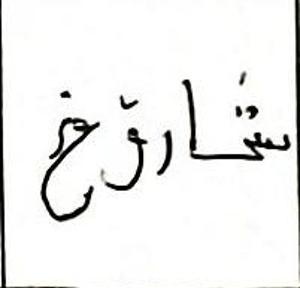 شارق خ